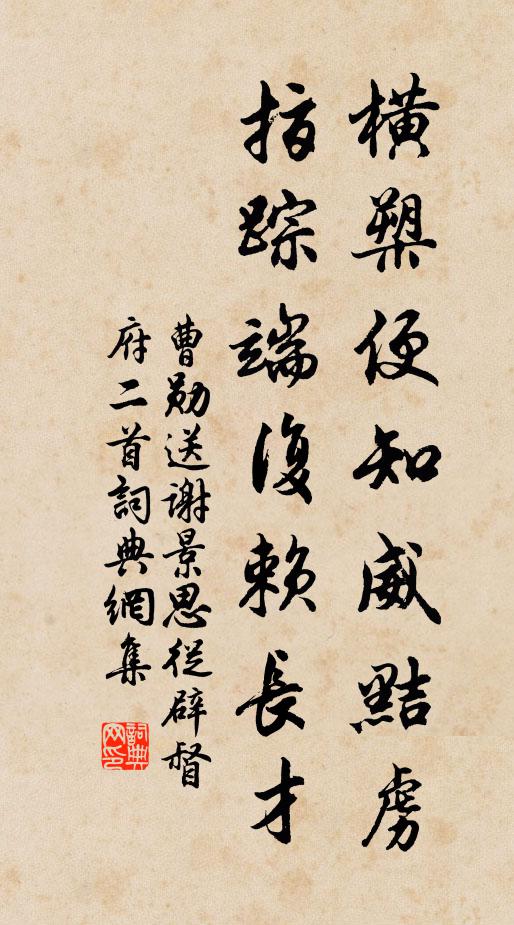 橫槊便知威黠虜
指踪端復賴長才
曹勛送謝景思從辟督
府二首詞典網集
詞典网印